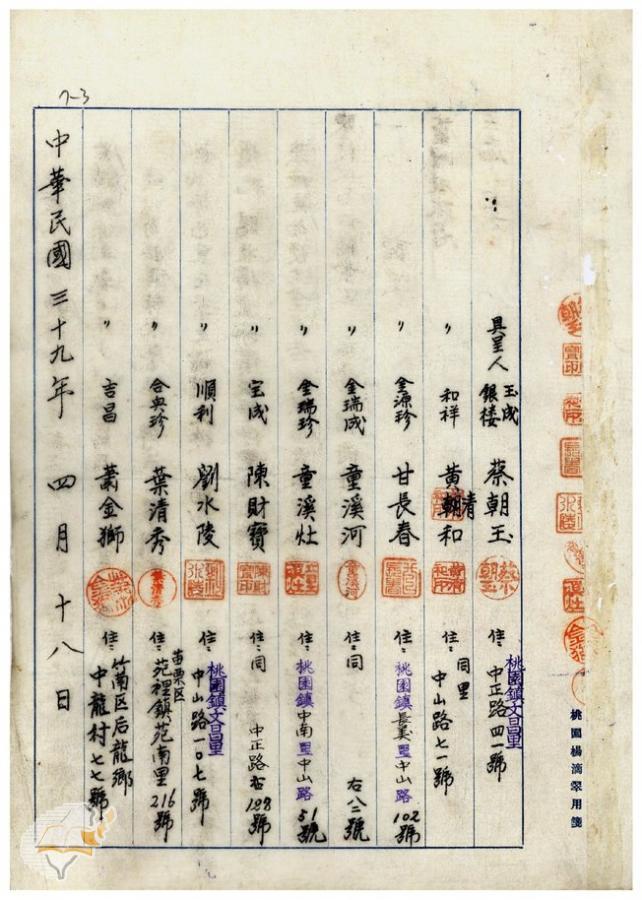 7-3
具呈人 玉成銀楼 蔡朝玉 住：桃園鎮文昌里中正路四一號
〃 和祥 黃清和 住：同里中山路七一號
〃 金源珍 甘長春 住：桃園鎮長美里中山路102號
〃 金瑞成 童溪河 住：同右八二號
〃 金瑞珍 童溪灶 住：桃園鎮中南里中山路51號
〃 宝成 陳財寶 住：同中正路188號
〃 順利 劉水陵 住：桃園鎮文昌里中山路一0七號
〃 合興珍 葉清秀 住：苗栗区苑裡鎮苑南里216號
〃 吉昌 蕭金獅 住：竹南区后龍鄉中龍村七七號
中華民國三十九年四月十八日
桃園楊滴翠用箋